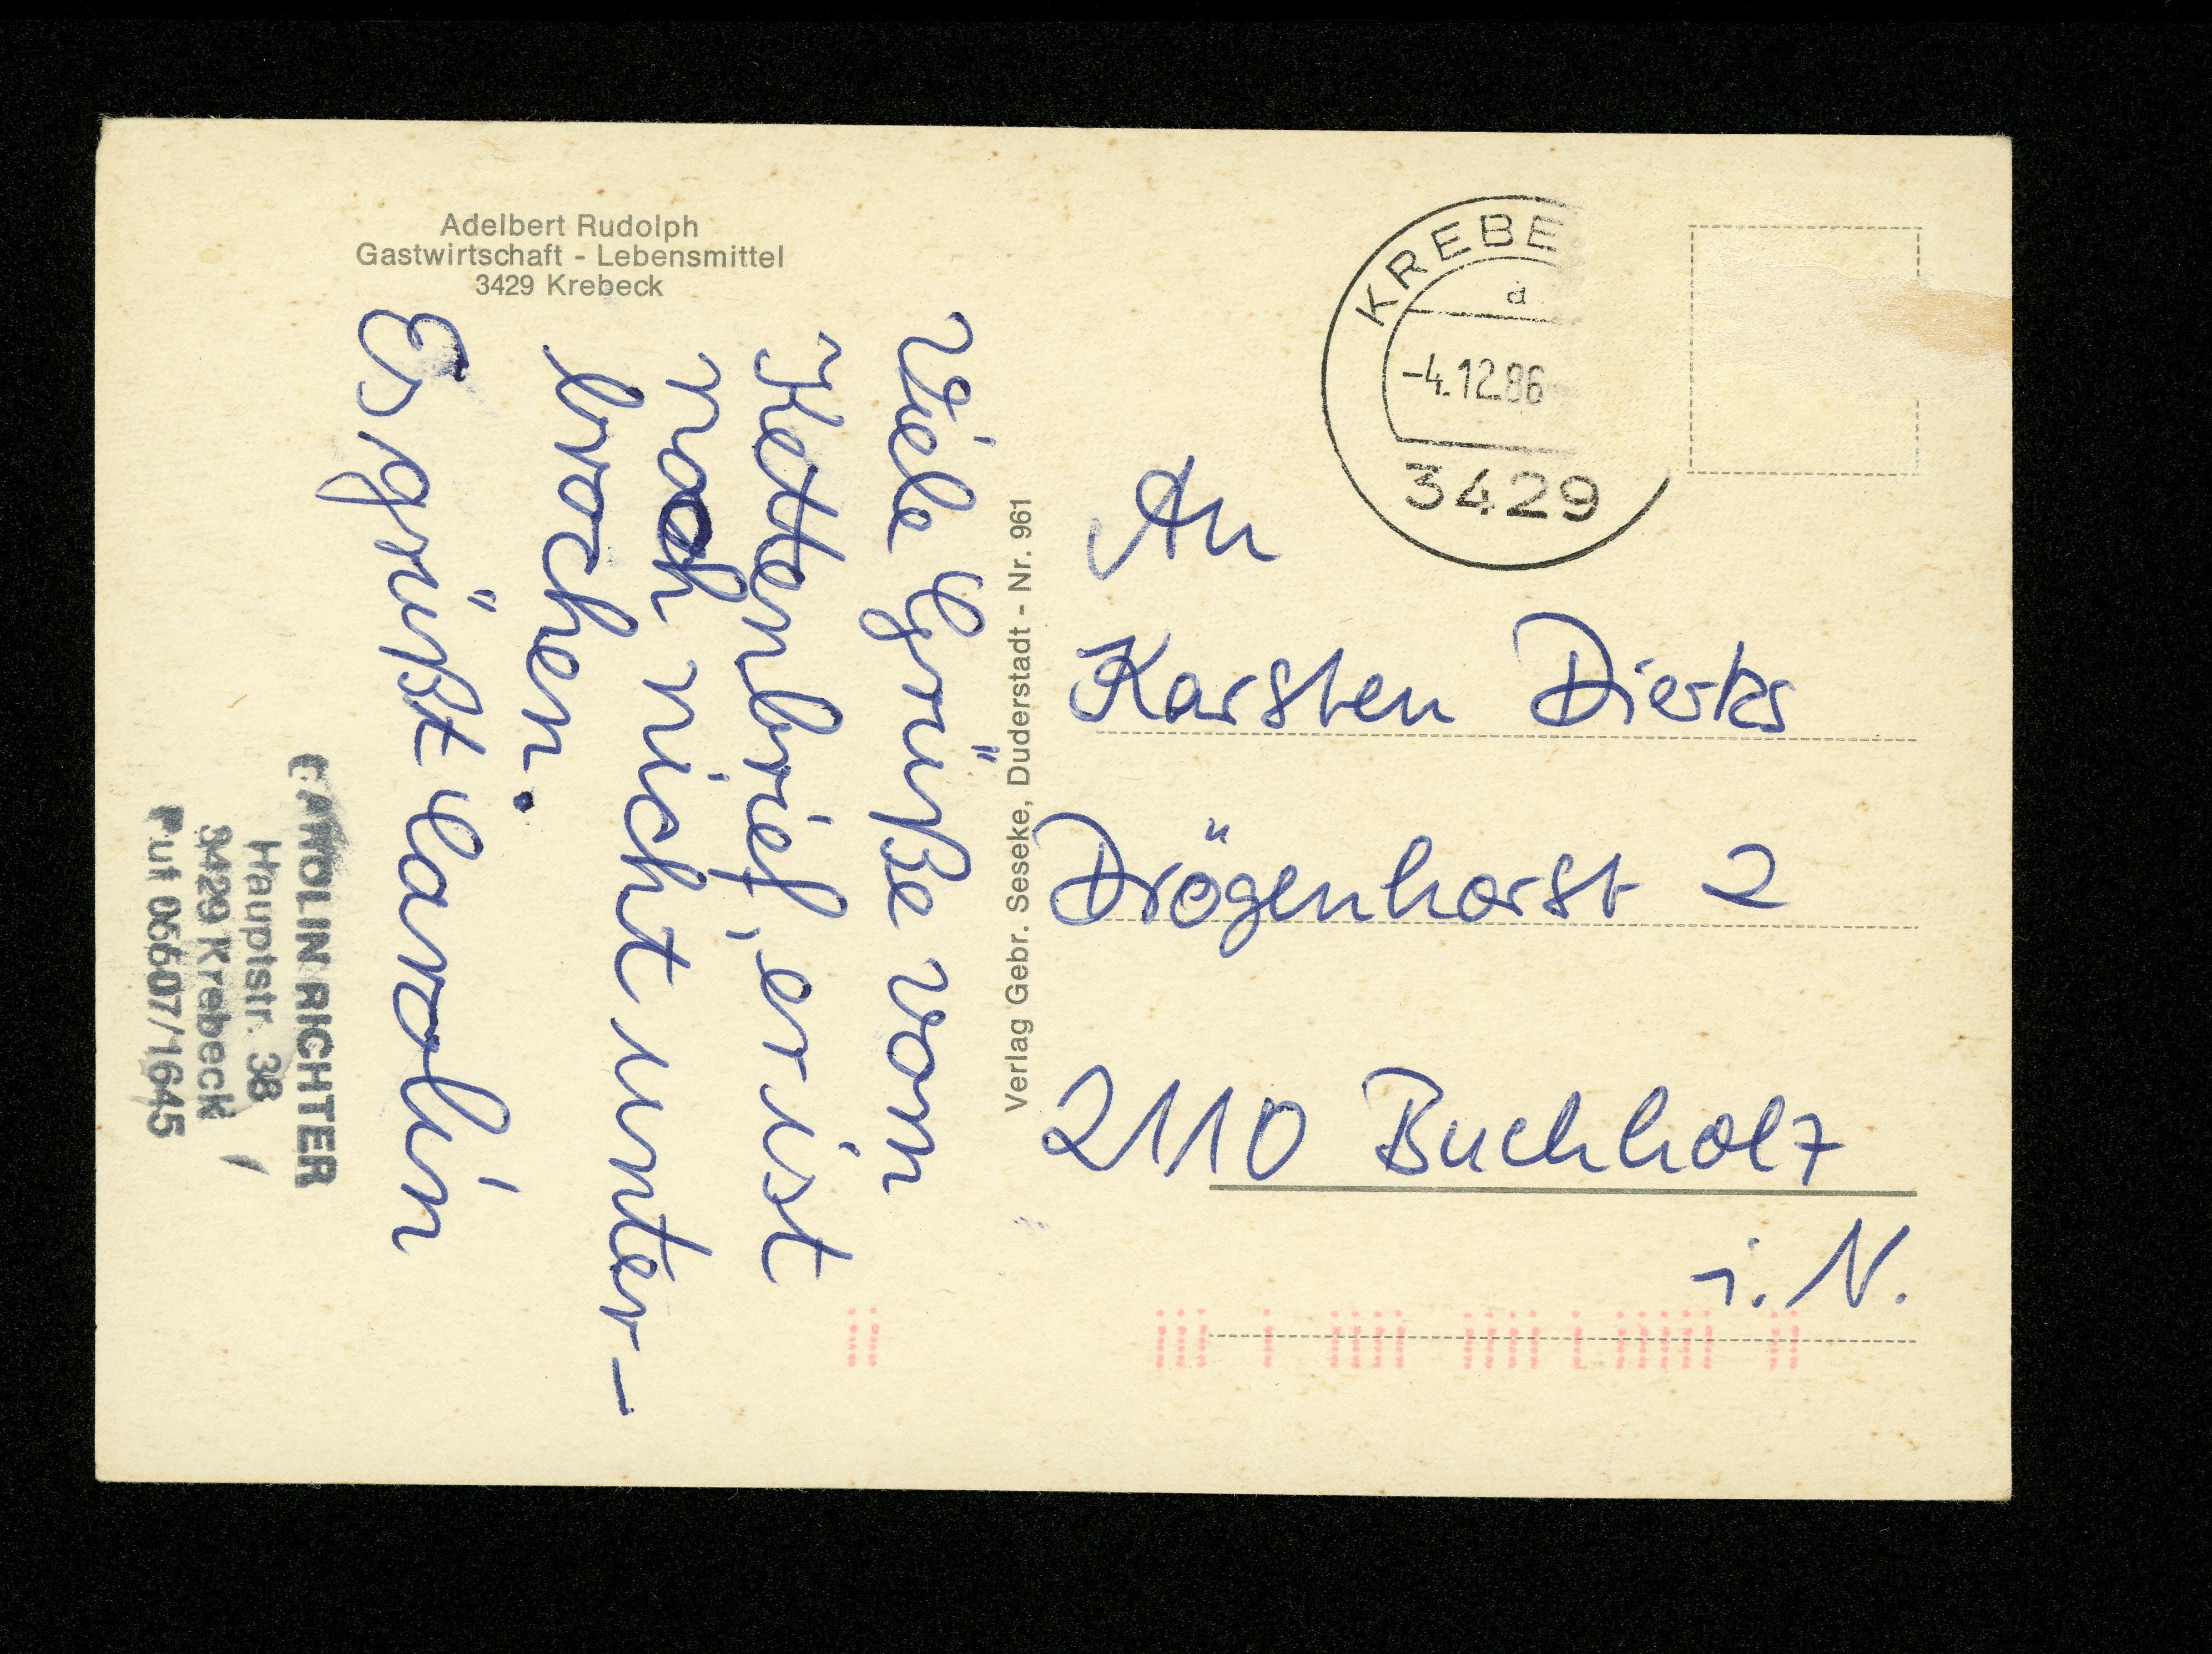 Adelbert Rudolph
Gastwirtschaft - Lebensmittel
3429 Krebeck
Viele Grüße vom
Kettenbrief, er ist
noch nicht unter-
brochen.
Es grüßt Carolin
CAROLIN RICHTER
Hauptstr. 38
3429 Krebeck
Ruf 05507/1645
Verlag Gebr. Seseke, Duderstadt - Nr. 961
KREBE
d
-4.12.86
3429
An
Karsten Dierks
Drögenhorst 2
2110 Buchholz
i. N.